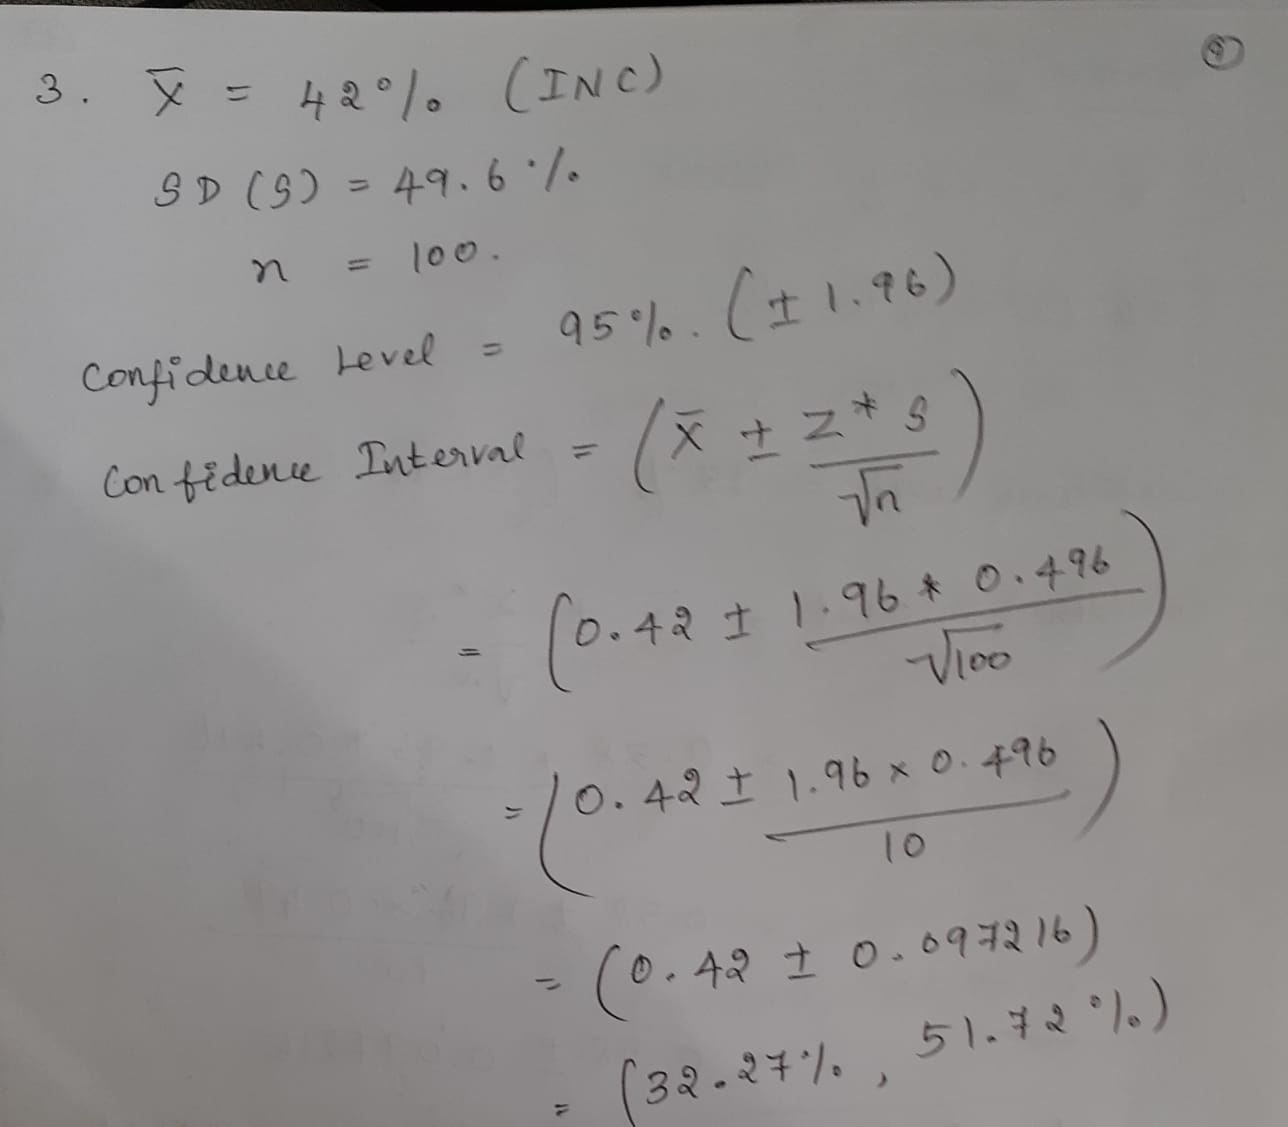 9
3. x̄ = 42% (INC)
SD (S) = 49.6%
n = 100.
Confidence Level = 95%. (± 1.96)
Confidence Interval = (x̄ ± Z* S / √n)
= (0.42 ± 1.96 * 0.496 / √100)
= (0.42 ± 1.96 × 0.496 / 10)
= (0.42 ± 0.097216)
= (32.27%, 51.72%)